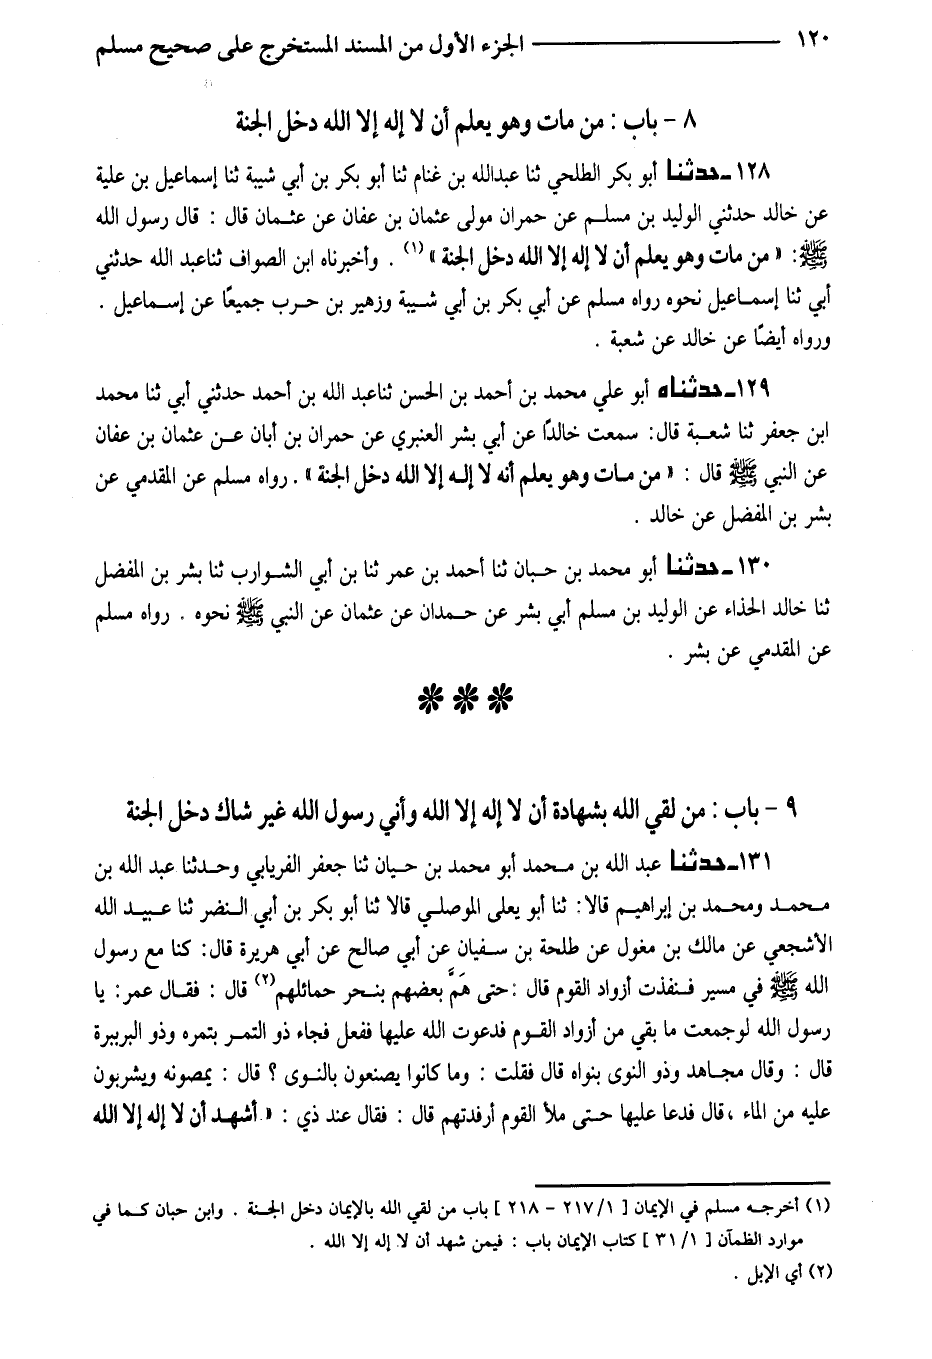 ١٢٠ ـــــــــــــــــ الجزء الأول من المسند المستخرج على صحيح مسلم
٨ - باب : من مات وهو يعلم أن لا إله إلا الله دخل الجنة
١٢٨ـ حدثنا أبو بكر الطلحي ثنا عبدالله بن غنام ثنا أبو بكر بن أبي شيبة ثنا إسماعيل بن علية
عن خالد حدثني الوليد بن مسلم عن حمران مولى عثمان بن عفان عن عثمان قال : قال رسول الله
ﷺ: « من مات وهو يعلم أن لا إله إلا الله دخل الجنة » (١) . وأخبرناه ابن الصواف ثناعبد الله حدثني
أبي ثنا إسماعيل نحوه رواه مسلم عن أبي بكر بن أبي شيبة وزهير بن حرب جميعًا عن إسماعيل .
ورواه أيضًا عن خالد عن شعبة .
١٢٩ـ حدثناه أبو علي محمد بن أحمد بن الحسن ثناعبد الله بن أحمد حدثني أبي ثنا محمد
ابن جعفر ثنا شعبة قال: سمعت خالدًا عن أبي بشر العنبري عن حمران بن أبان عن عثمان بن عفان
عن النبي ﷺ قال : « من مات وهو يعلم أنه لا إله إلا الله دخل الجنة » . رواه مسلم عن المقدمي عن
بشر بن المفضل عن خالد .
١٣٠ـ حدثنا أبو محمد بن حبان ثنا أحمد بن عمر ثنا بن أبي الشوارب ثنا بشر بن المفضل
ثنا خالد الحذاء عن الوليد بن مسلم أبي بشر عن حمدان عن عثمان عن النبي ﷺ نحوه . رواه مسلم
عن المقدمي عن بشر .
❋ ❋ ❋
٩ - باب : من لقي الله بشهادة أن لا إله إلا الله وأني رسول الله غير شاك دخل الجنة
١٣١ـ حدثنا عبد الله بن محمد أبو محمد بن حيان ثنا جعفر الفريابي وحدثنا عبد الله بن
محمد ومحمد بن إبراهيم قالا: ثنا أبو يعلى الموصلي قالا ثنا أبو بكر بن أبي النضر ثنا عبيد الله
الأشجعي عن مالك بن مغول عن طلحة بن سفيان عن أبي صالح عن أبي هريرة قال: كنا مع رسول
الله ﷺ في مسير فنفذت أزواد القوم قال :حتى هَمَّ بعضهم بنحر حمائلهم(٢) قال : فقال عمر: يا
رسول الله لوجمعت ما بقي من أزواد القوم فدعوت الله عليها ففعل فجاء ذو التمر بتمره وذو البرببرة
قال : وقال مجاهد وذو النوى بنواه قال فقلت : وما كانوا يصنعون بالنوى ؟ قال : يمصونه ويشربون
عليه من الماء ،قال فدعا عليها حتى ملأ القوم أرفدتهم قال : فقال عند ذي : « أشهد أن لا إله إلا الله
(١) أخرجه مسلم في الإيمان [ ١/ ٢١٧ - ٢١٨ ] باب من لقي الله بالإيمان دخل الجنة . وابن حبان كما في
موارد الظمآن [ ١/ ٣١ ] كتاب الإيمان باب : فيمن شهد أن لا إله إلا الله .
(٢) أي الإبل .